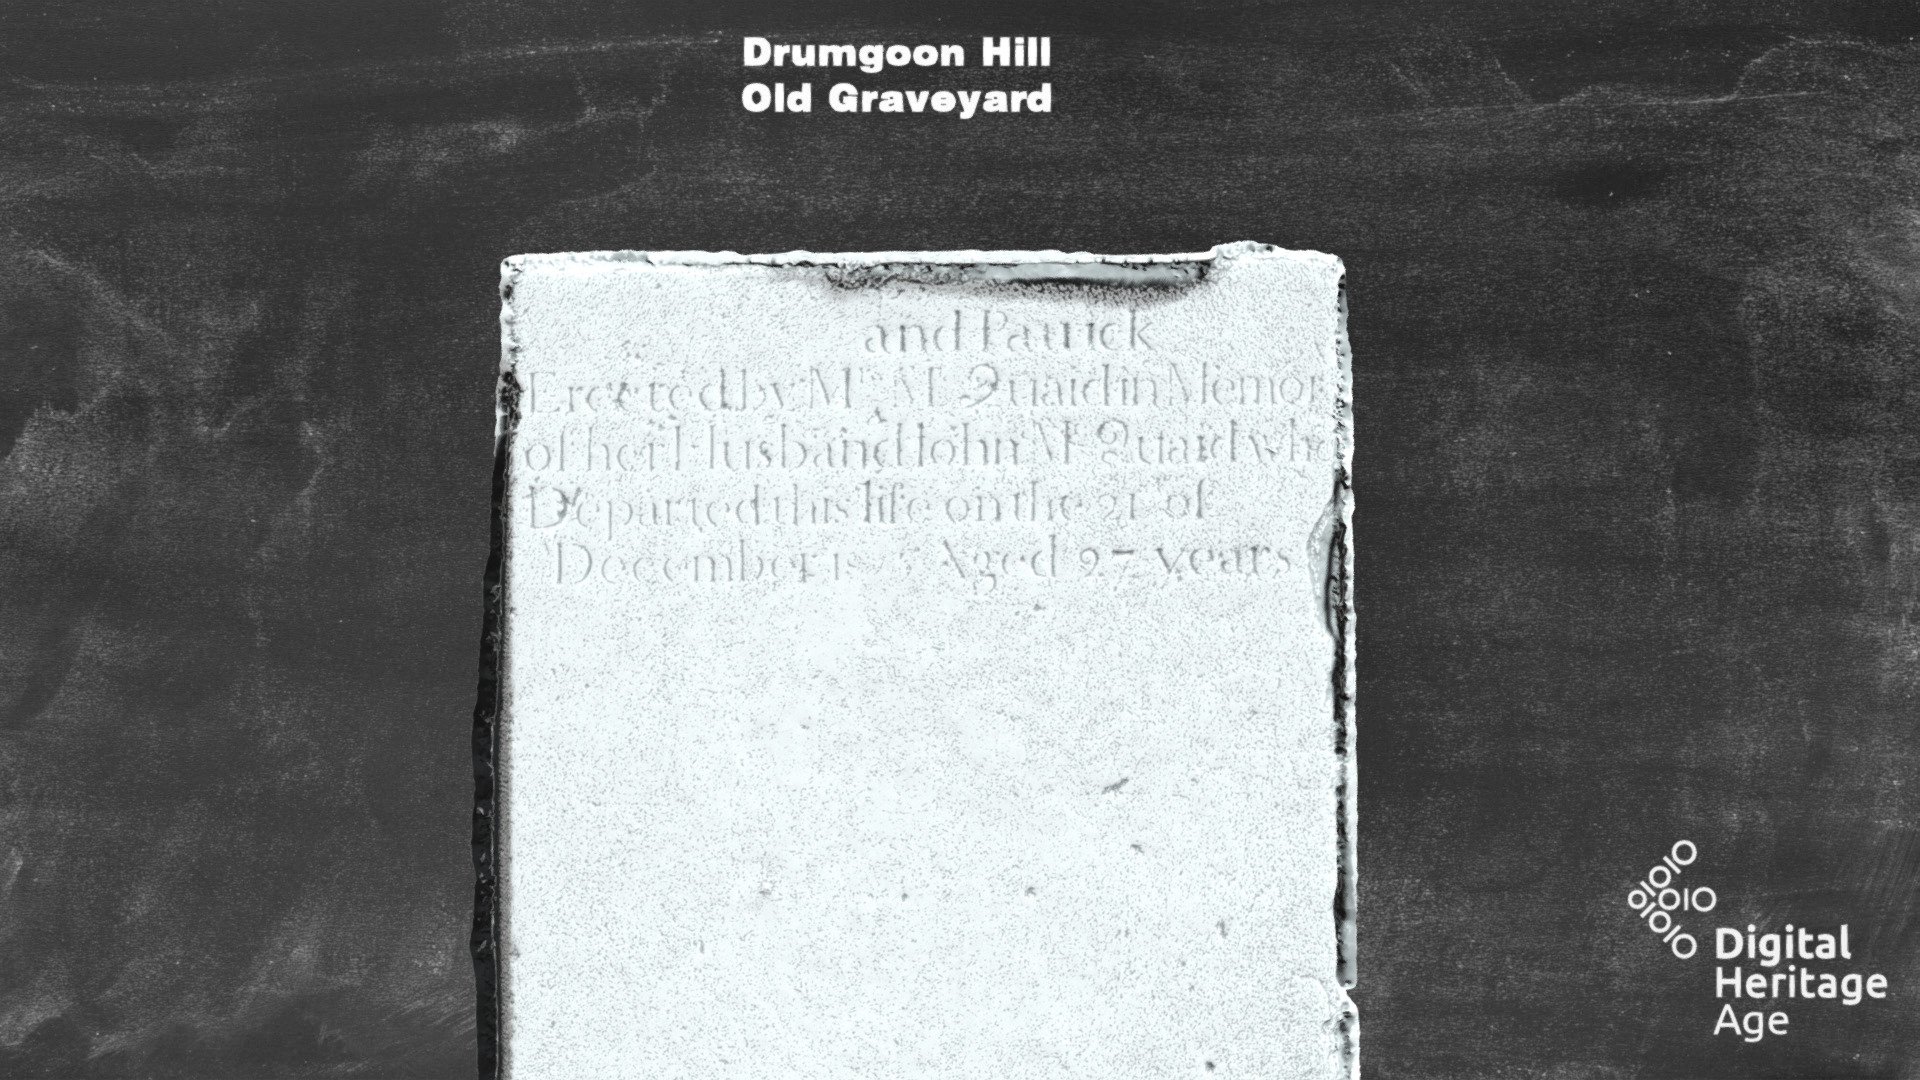 Drumgoon Hill
Old Graveyard
and Patrick
Erected by Mrs Mc Quaid in Memor
of her Husband Iohn Mc Quaid who
Departed this life on the 21 of
December Aged 27 years
Digital
Heritage
Age